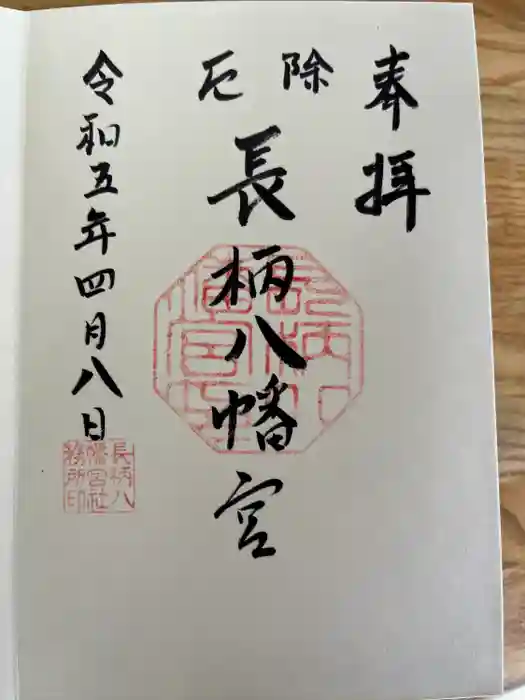 奉拝
厄除
長柄八幡宮
令和五年四月八日
長柄八
幡宮社
務所印